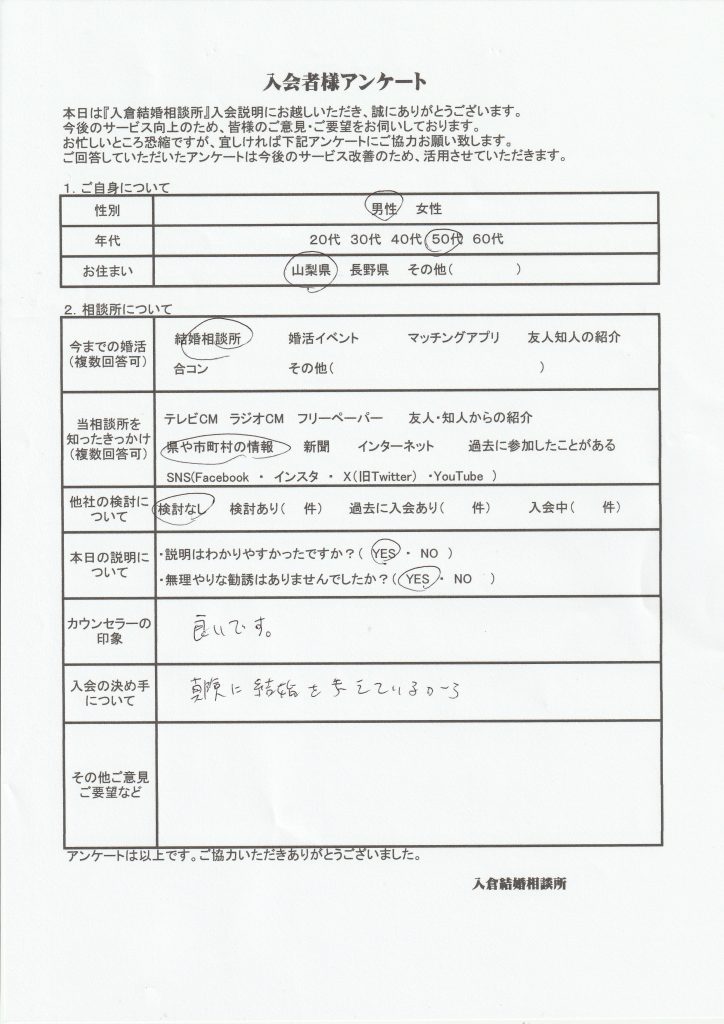 入会者様アンケート
本日は『入倉結婚相談所』入会説明にお越しいただき、誠にありがとうございます。
今後のサービス向上のため、皆様のご意見・ご要望をお伺いしております。
お忙しいところ恐縮ですが、宜しければ下記アンケートにご協力お願い致します。
ご回答していただいたアンケートは今後のサービス改善のため、活用させていただきます。
1．ご自身について
性別 男性 女性
年代 20代 30代 40代 50代 60代
お住まい 山梨県 長野県 その他( )
2．相談所について
今までの婚活
(複数回答可)
結婚相談所 婚活イベント マッチングアプリ 友人知人の紹介
合コン その他( )
当相談所を
知ったきっかけ
(複数回答可)
テレビCM ラジオCM フリーペーパー 友人・知人からの紹介
県や市町村の情報 新聞 インターネット 過去に参加したことがある
SNS(Facebook ・ インスタ ・ X(旧Twitter) ・YouTube )
他社の検討に
ついて
検討なし 検討あり( 件) 過去に入会あり( 件) 入会中( 件)
本日の説明に
ついて
・説明はわかりやすかったですか？( YES ・ NO )
・無理やりな勧誘はありませんでしたか？( YES ・ NO )
カウンセラーの
印象
良いです。
入会の決め手
について
真険に結婚を考えているから
その他ご意見
ご要望など
アンケートは以上です。ご協力いただきありがとうございました。
入倉結婚相談所